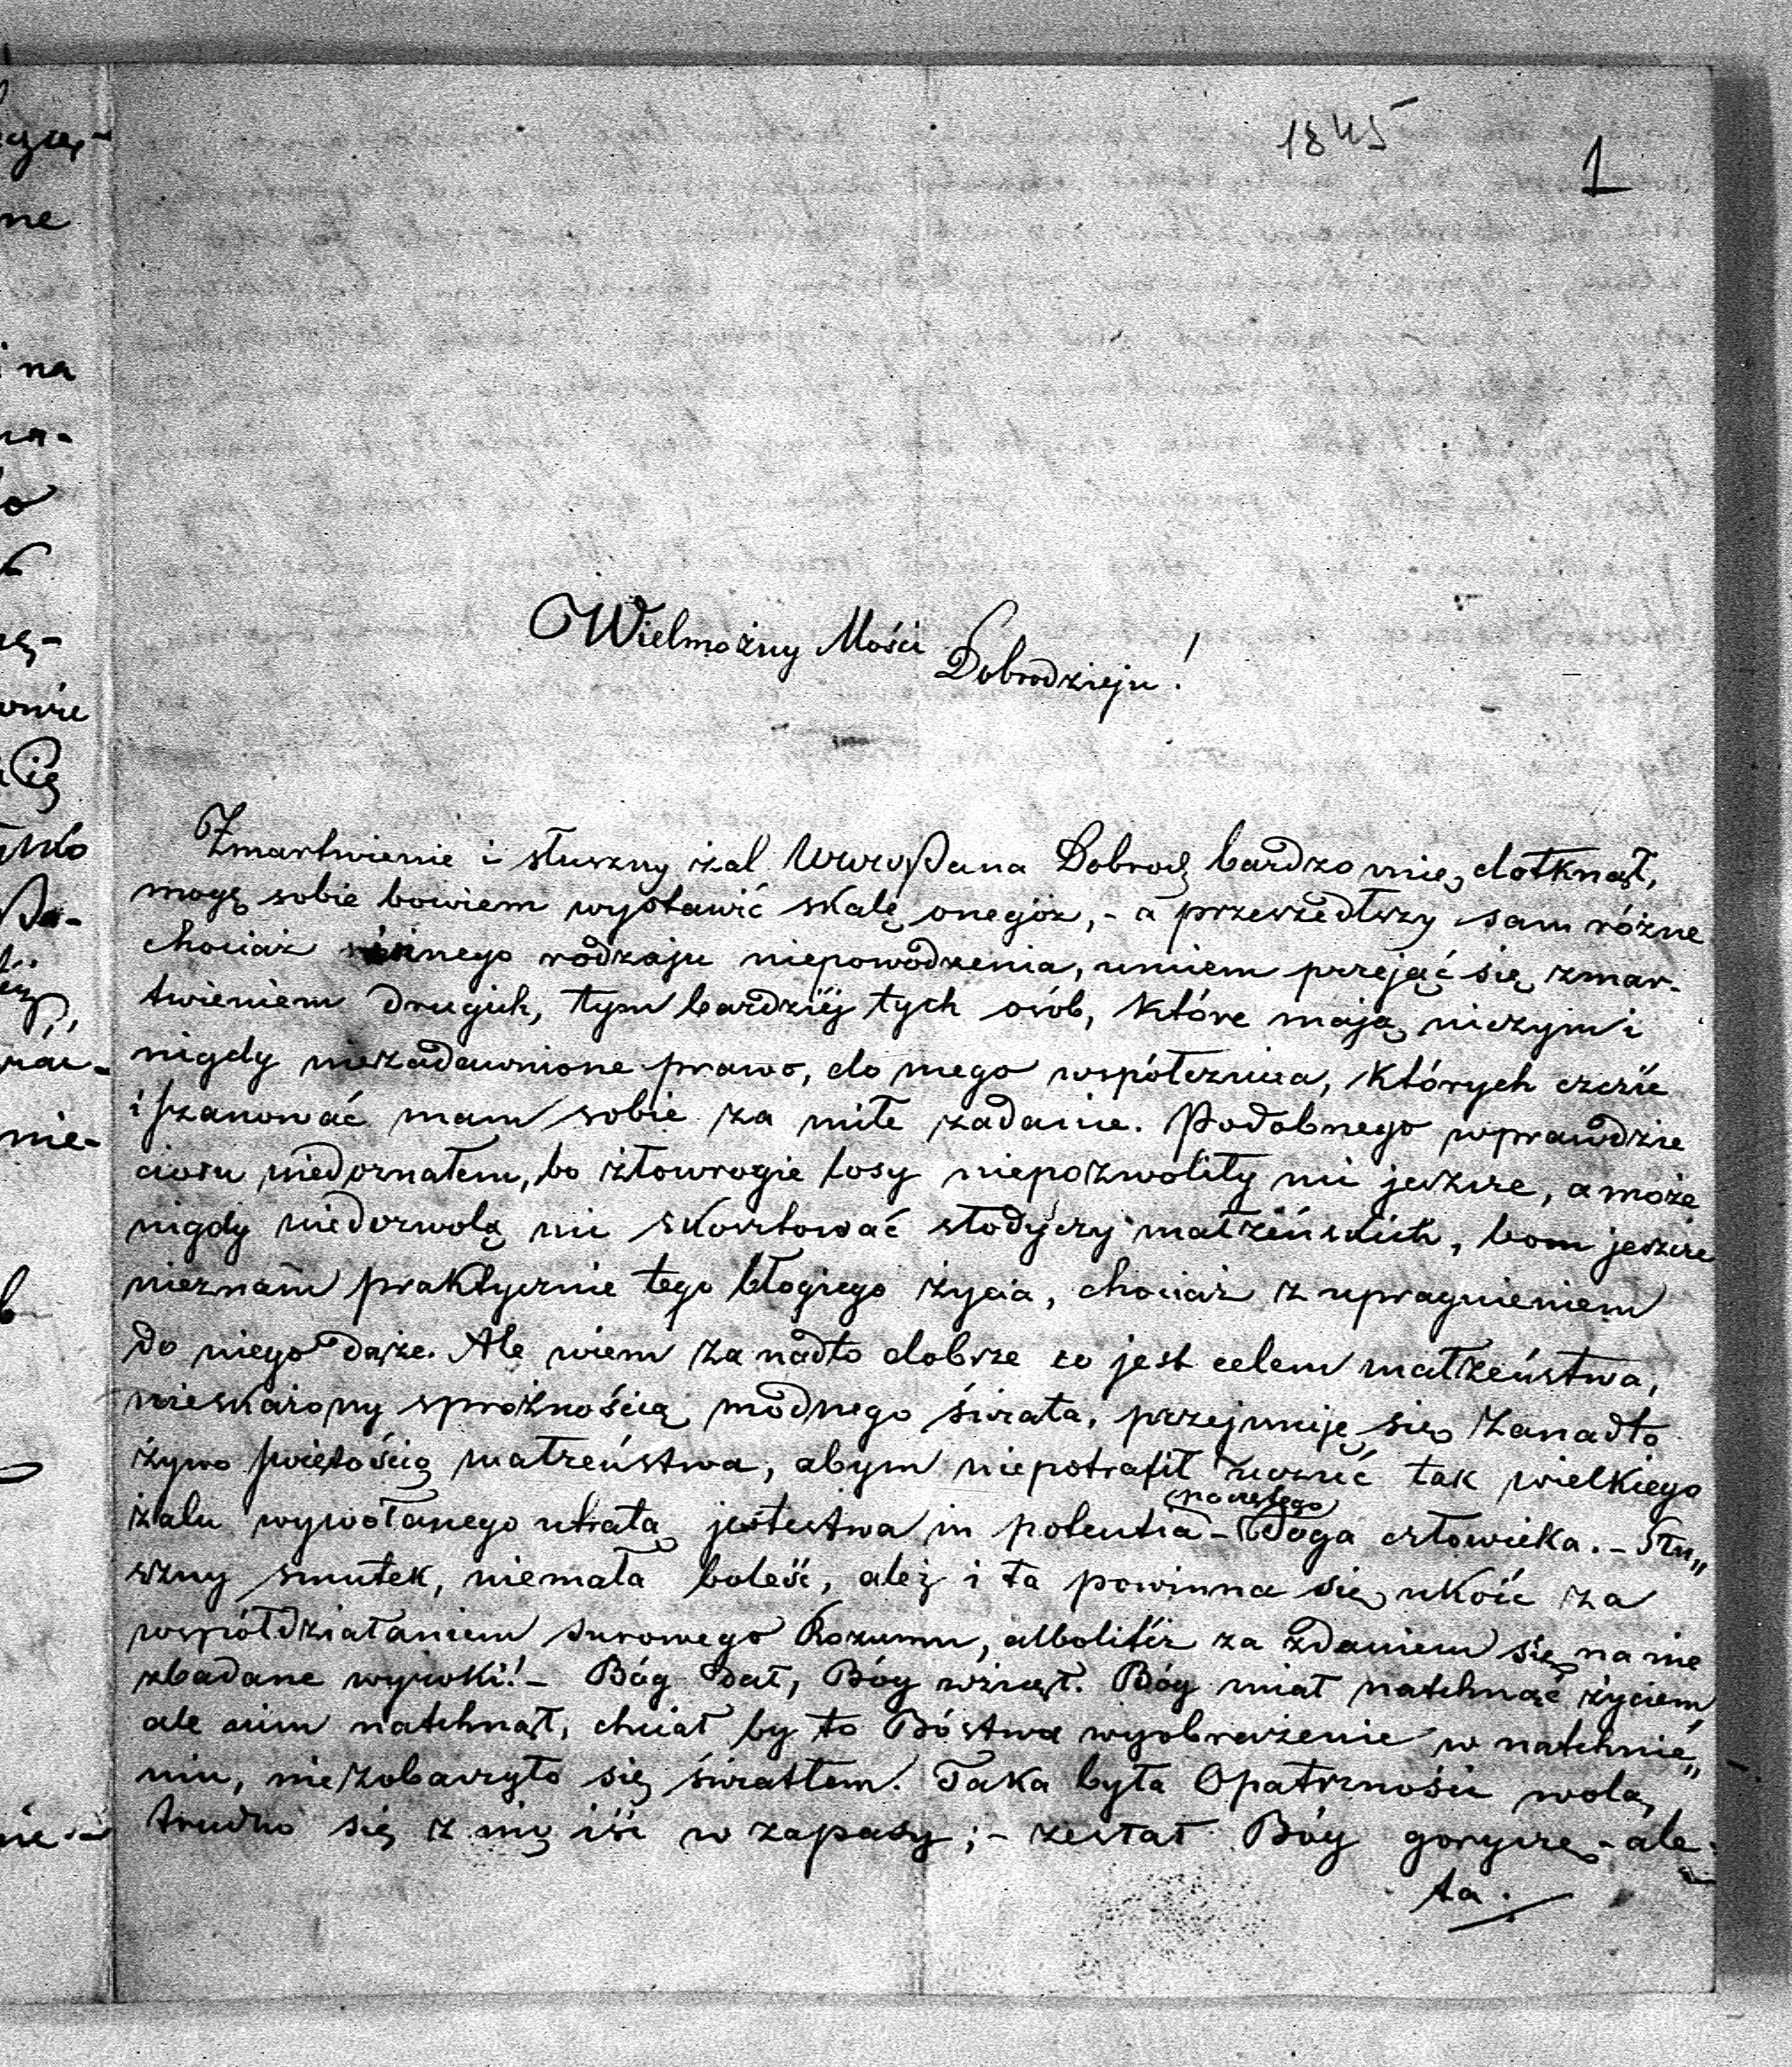 1845
1
Wielmożny Mości
Dobrodzieju!
Zmartwienie i słuszny żal WWPana Dobrodz bardzo mię dotknął,
mogę sobie bowiem wystawić skalę onegóż, - a przeszedłszy sam różne
chociaż innego rodzaju niepowodzenia, umiem przejąć się zmar-
twieniem drugich, tym bardziéj tych osób, które mają niczym i
nigdy niezadawnione prawo, do mego współczucia, których czcić
i szanować mam sobie za miłe zadanie. Podobnego wprawdzie
ciosu niedoznałem, bo złowrogie losy niepozwoliły mi jeszcze, a może
nigdy niedozwolą mi skosztować słodyczy małżeńskich, bom jeszcze
nieznam praktycznie tego błogiego życia, chociaż z upragnieniem
do niego dążę. Ale wiem za nadto dobrze co jest celem małżeństwa,
nieskażony sprośnością modnego świata, przejmuję się zanadto
żywo świętością małżeństwa, abym niepotrafił uczuć tak wielkiego
żalu wywołanego utratą jestestwa in potentia - poczętego
człowieka. - Słu„
szny smutek, niemała boleść, aleź i ta powinna się ukoić za
współdziałaniem surowego Rozumu, albolitéż za zdaniem się na nie
zbadane wyroki! - Bóg dał, Bóg wziął. Bóg miał natchnąć życiem
ale nim natchnął, chciał by to Bóstwa wyobrażenie w natchnie„
niu, niezobaczyło się światłem. Taka była Opatrzności wola,
trudno się z nią iść w zapasy; - zesłał Bóg gorycze - ale
ta